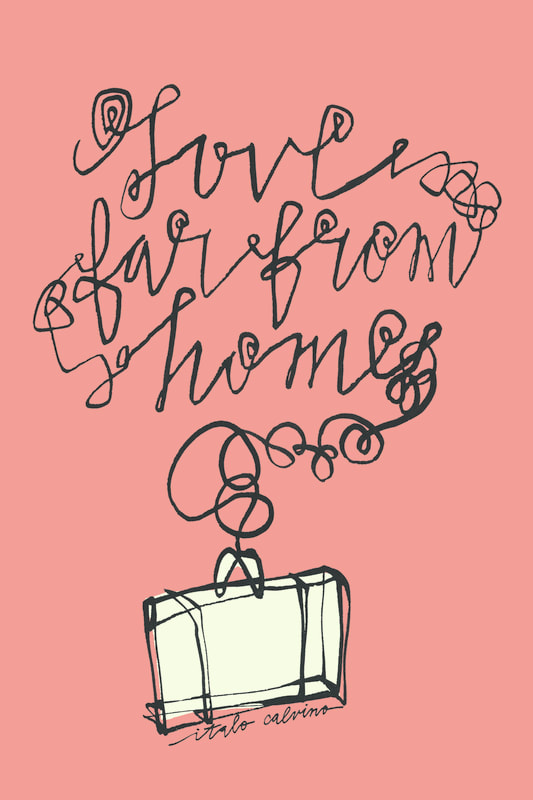 Love
far from
home
italo calvino